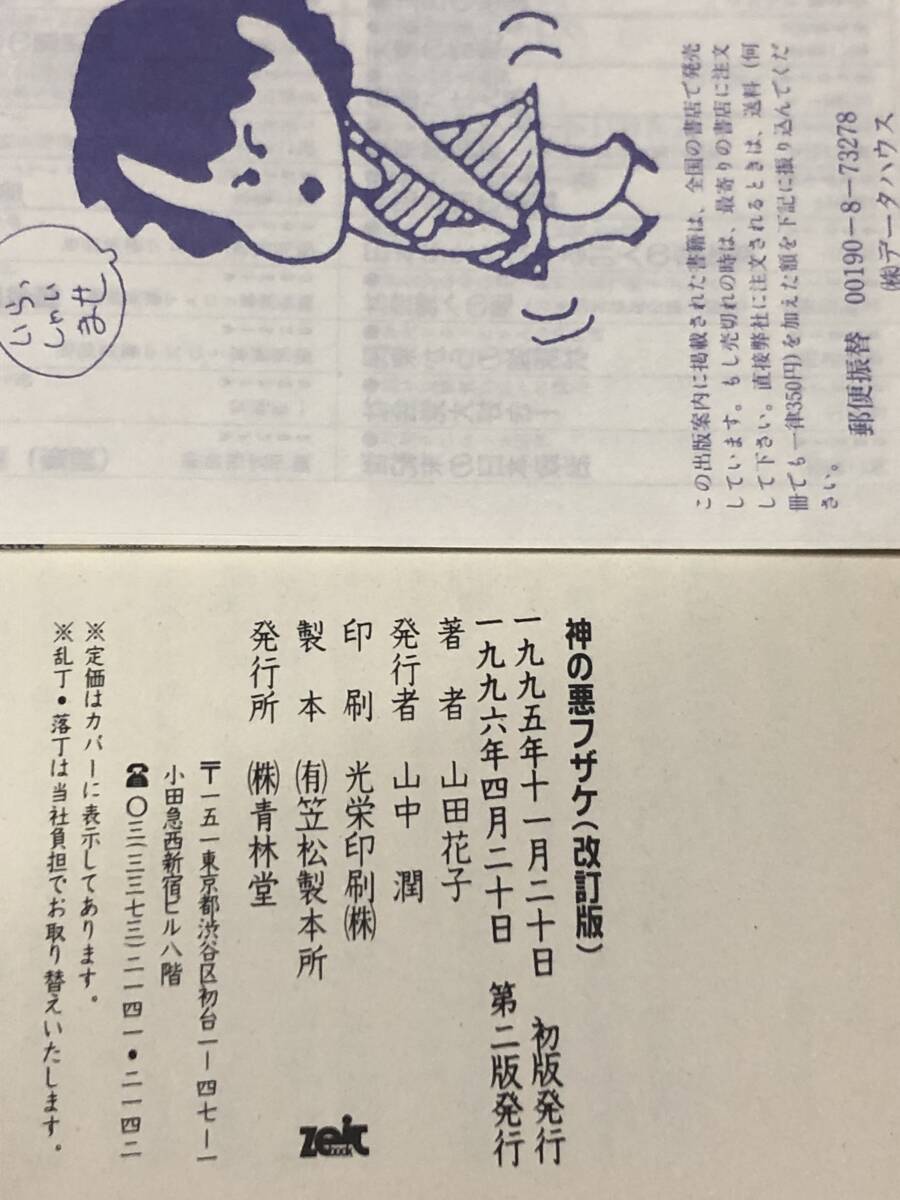 いらっ
しゃい
ませ
この出版案内に掲載された書籍は、全国の書店で発売
しています。もし売切れの時は、最寄りの書店に注文
して下さい。直接弊社に注文されるときは、送料（何
冊でも一律350円）を加えた額を下記に振り込んでくだ
さい。
郵便振替　00190－8－73278
㈱データハウス
神の悪フザケ（改訂版）
一九九五年十一月二十日　初版発行
一九九六年四月二十日　第二版発行
著者　山田花子
発行者　山中　潤
印刷　光栄印刷㈱
製本　㈲笠松製本所
発行所　㈱青林堂
〒一五一東京都渋谷区初台一ー四七ー一
小田急西新宿ビル八階
☎〇三（三三七三）二一四一・二一四二
※定価はカバーに表示してあります。
※乱丁・落丁は当社負担でお取り替えいたします。
zeit
book